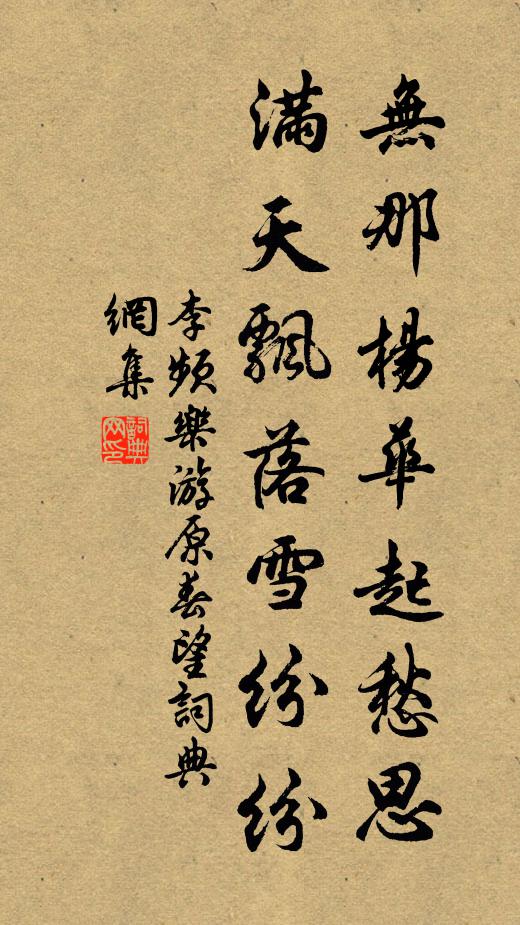 無那楊華起愁思
滿天飄落雪紛紛
李頻樂游原春望詞典
網集
詞典网印